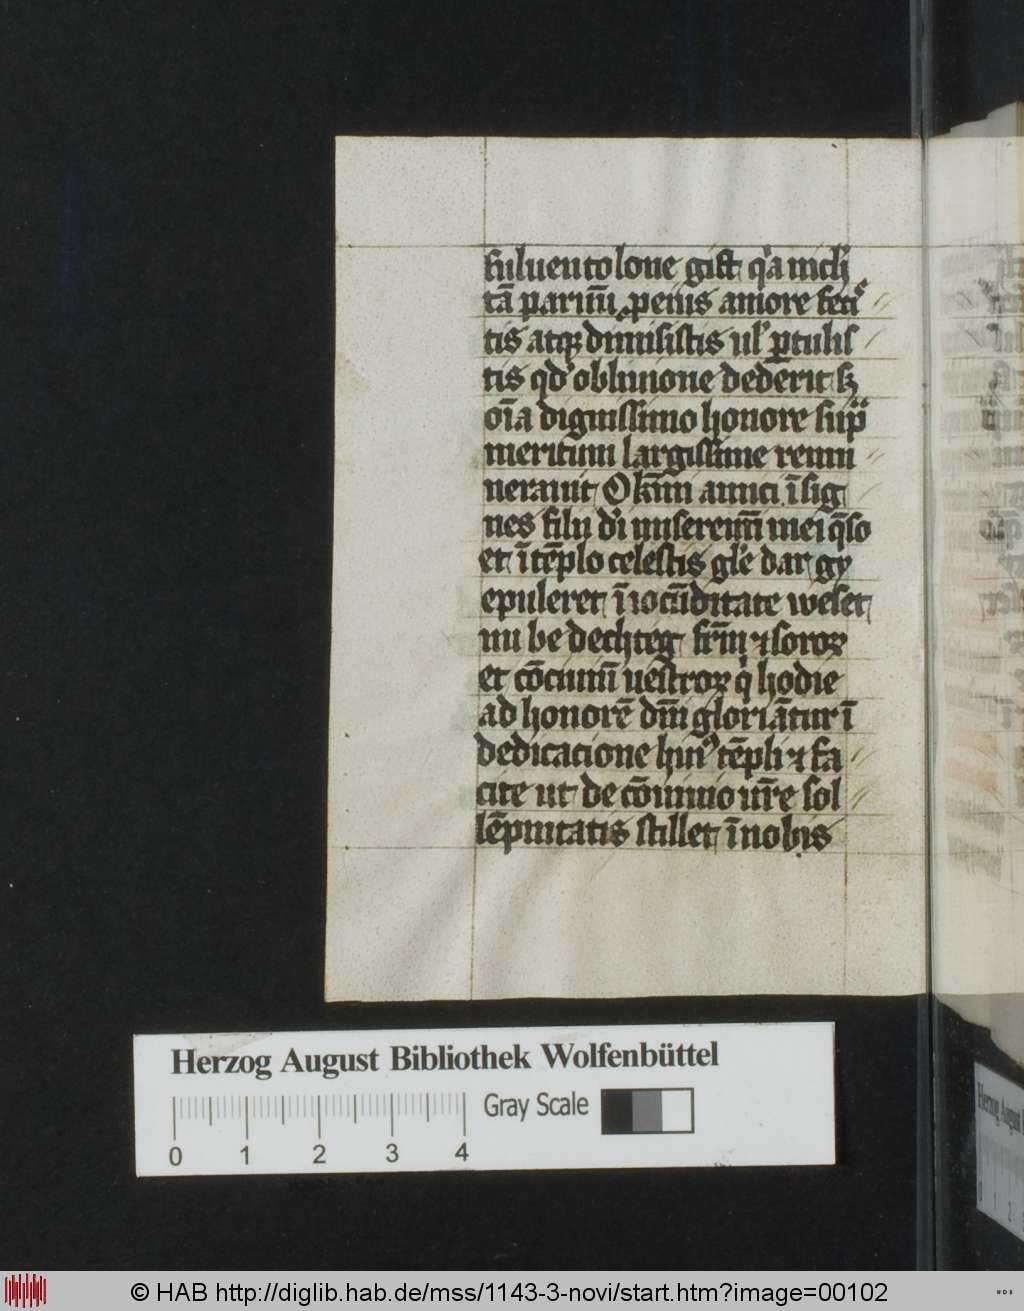 suluen to lone gift qͥa nich
tā paruū ꝓ eius amore feciˢ
tis atqꝫ dimisistis ul' ꝑtulis
tis qd' obliuione dederit sꝫ
oīa dignissimo honore sup̄
meritum largissime remu
nerauit O km̄ amici īsig
nes filii di miseremī mei q̄so
et ī tēplo celestis gl'e dar gy
epuleret ī iocūditate weset
nu be dechteg frm̄ ⁊ soroꝝ
et cōciuiū uestroꝝ qͥ hodie
ad honorē dm̄ gloriātur ī
dedicacione huiꝰ tēpli ⁊ fa
cite ut de cōuiuio ur̄e sol
lēpnitatis stillet ī nobis
Herzog August Bibliothek Wolfenbüttel
Gray Scale
0 1 2 3 4
© HAB http://diglib.hab.de/mss/1143-3-novi/start.htm?image=00102